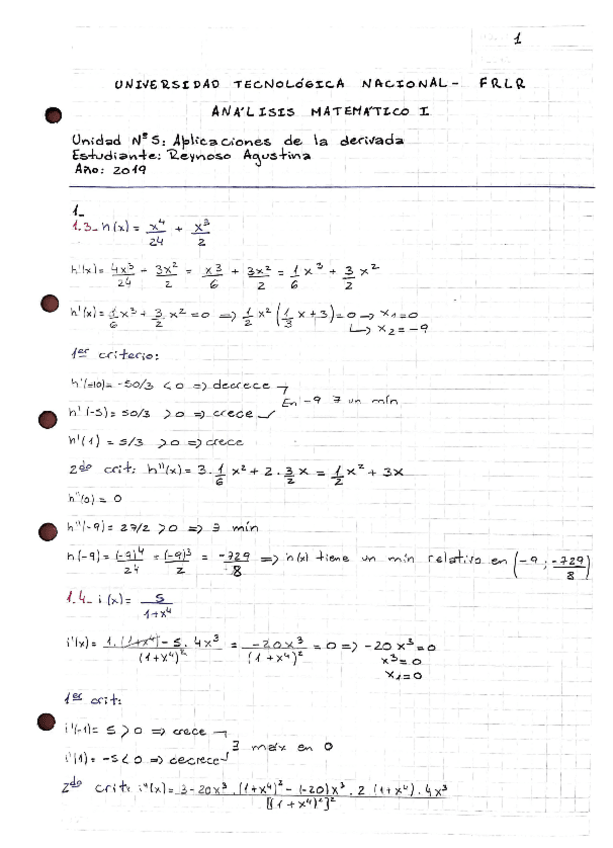 1
UNIVERSIDAD TECNOLÓGICA NACIONAL - FRLR
ANÁLISIS MATEMÁTICO I
Unidad N°5: Aplicaciones de la derivada
Estudiante: Reynoso Agustina
Año: 2019
1_
1.3_ h(x) = x⁴/24 + x³/2
h'(x) = 4x³/24 + 3x²/2 = x³/6 + 3x²/2 = 1/6 x³ + 3/2 x²
h'(x) = 1/6 x³ + 3/2 x² = 0 => 1/2 x² (1/3 x + 3) = 0 → x₁ = 0
↳ x₂ = -9
1er criterio:
h'(-10) = -50/3 < 0 => decrece
En -9 ∃ un mín
h'(-5) = 50/3 > 0 => crece
h'(1) = 5/3 > 0 => crece
2do crit: h''(x) = 3 . 1/6 x² + 2 . 3/2 x = 1/2 x² + 3x
h''(0) = 0
h''(-9) = 27/2 > 0 => ∃ mín
h(-9) = (-9)⁴/24 + (-9)³/2 = -729/8 => h(x) tiene un mín relativo en (-9 ; -729/8)
1.4_ i(x) = 5/1+x⁴
i'(x) = 1.(1+x⁴) - 5 . 4x³/(1+x⁴)² = -20x³/(1+x⁴)² = 0 => -20x³ = 0
x³ = 0
x₁ = 0
1er crit:
i'(-1) = 5 > 0 => crece
∃ máx en 0
i'(1) = -5 < 0 => decrece
2do crit: i''(x) = 3 - 20x³ . (1+x⁴)² - (-20)x³ . 2 (1+x⁴) . 4x³/[(1+x⁴)²]²